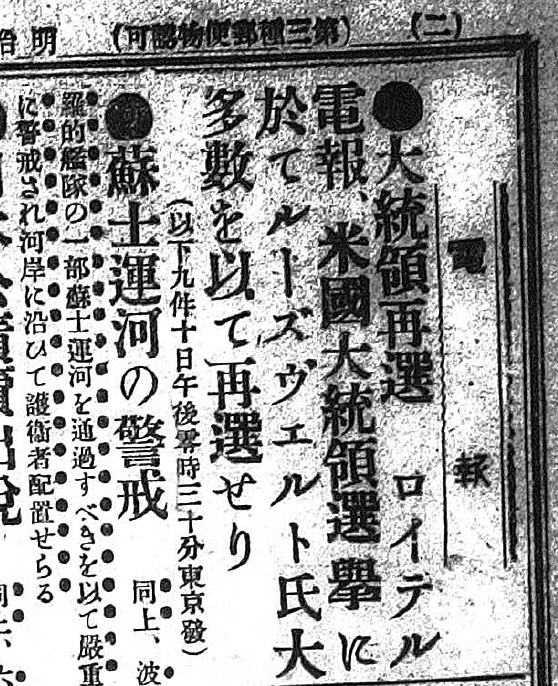 (二)
(第三種郵便物認可)
明治
電報
●大統領再選 ロイテル
電報、米國大統領選擧に
於てルーズヴェルト氏大
多數を以て再選せり
(以下九件十日午後零時三十分東京發)
●蘇士運河の警戒 同上、波
羅的艦隊の一部蘇士運河を通過すべきを以て嚴重
に警戒され河岸に沿ひて護衛者配置せらる